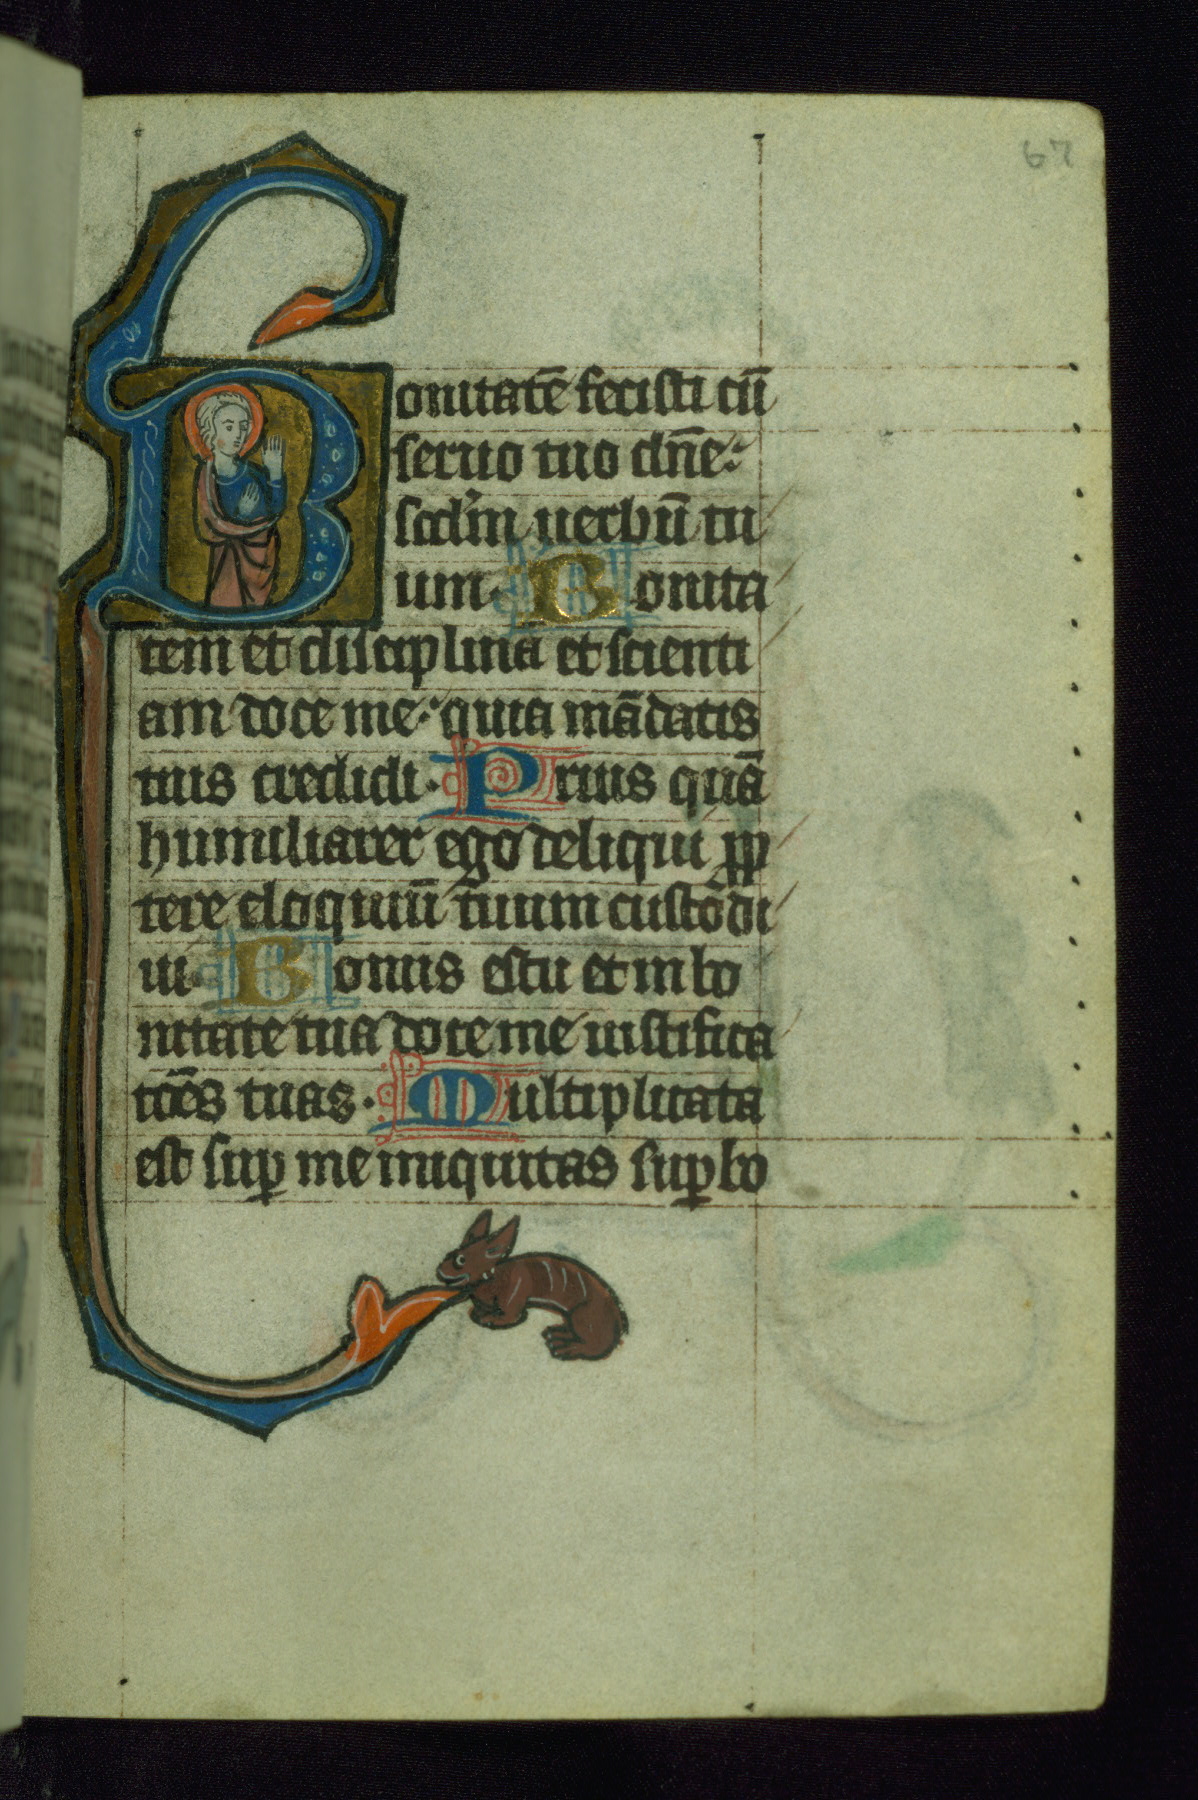 67
Bonitatē fecisti cū
seruo tuo dn̄e
scd'm uerbū tu
um. Bonita
tem et disciplina et scienti
am doce me. quia mādatis
tuis credidi. Prius quā
humiliarer ego deliqui pp
tere eloquiū tuum custodi
ui. Bonus es tu et in bo
nitate tua doce me iustifica
tōēs tuas. Multiplicata
est sup me iniquitas supbo